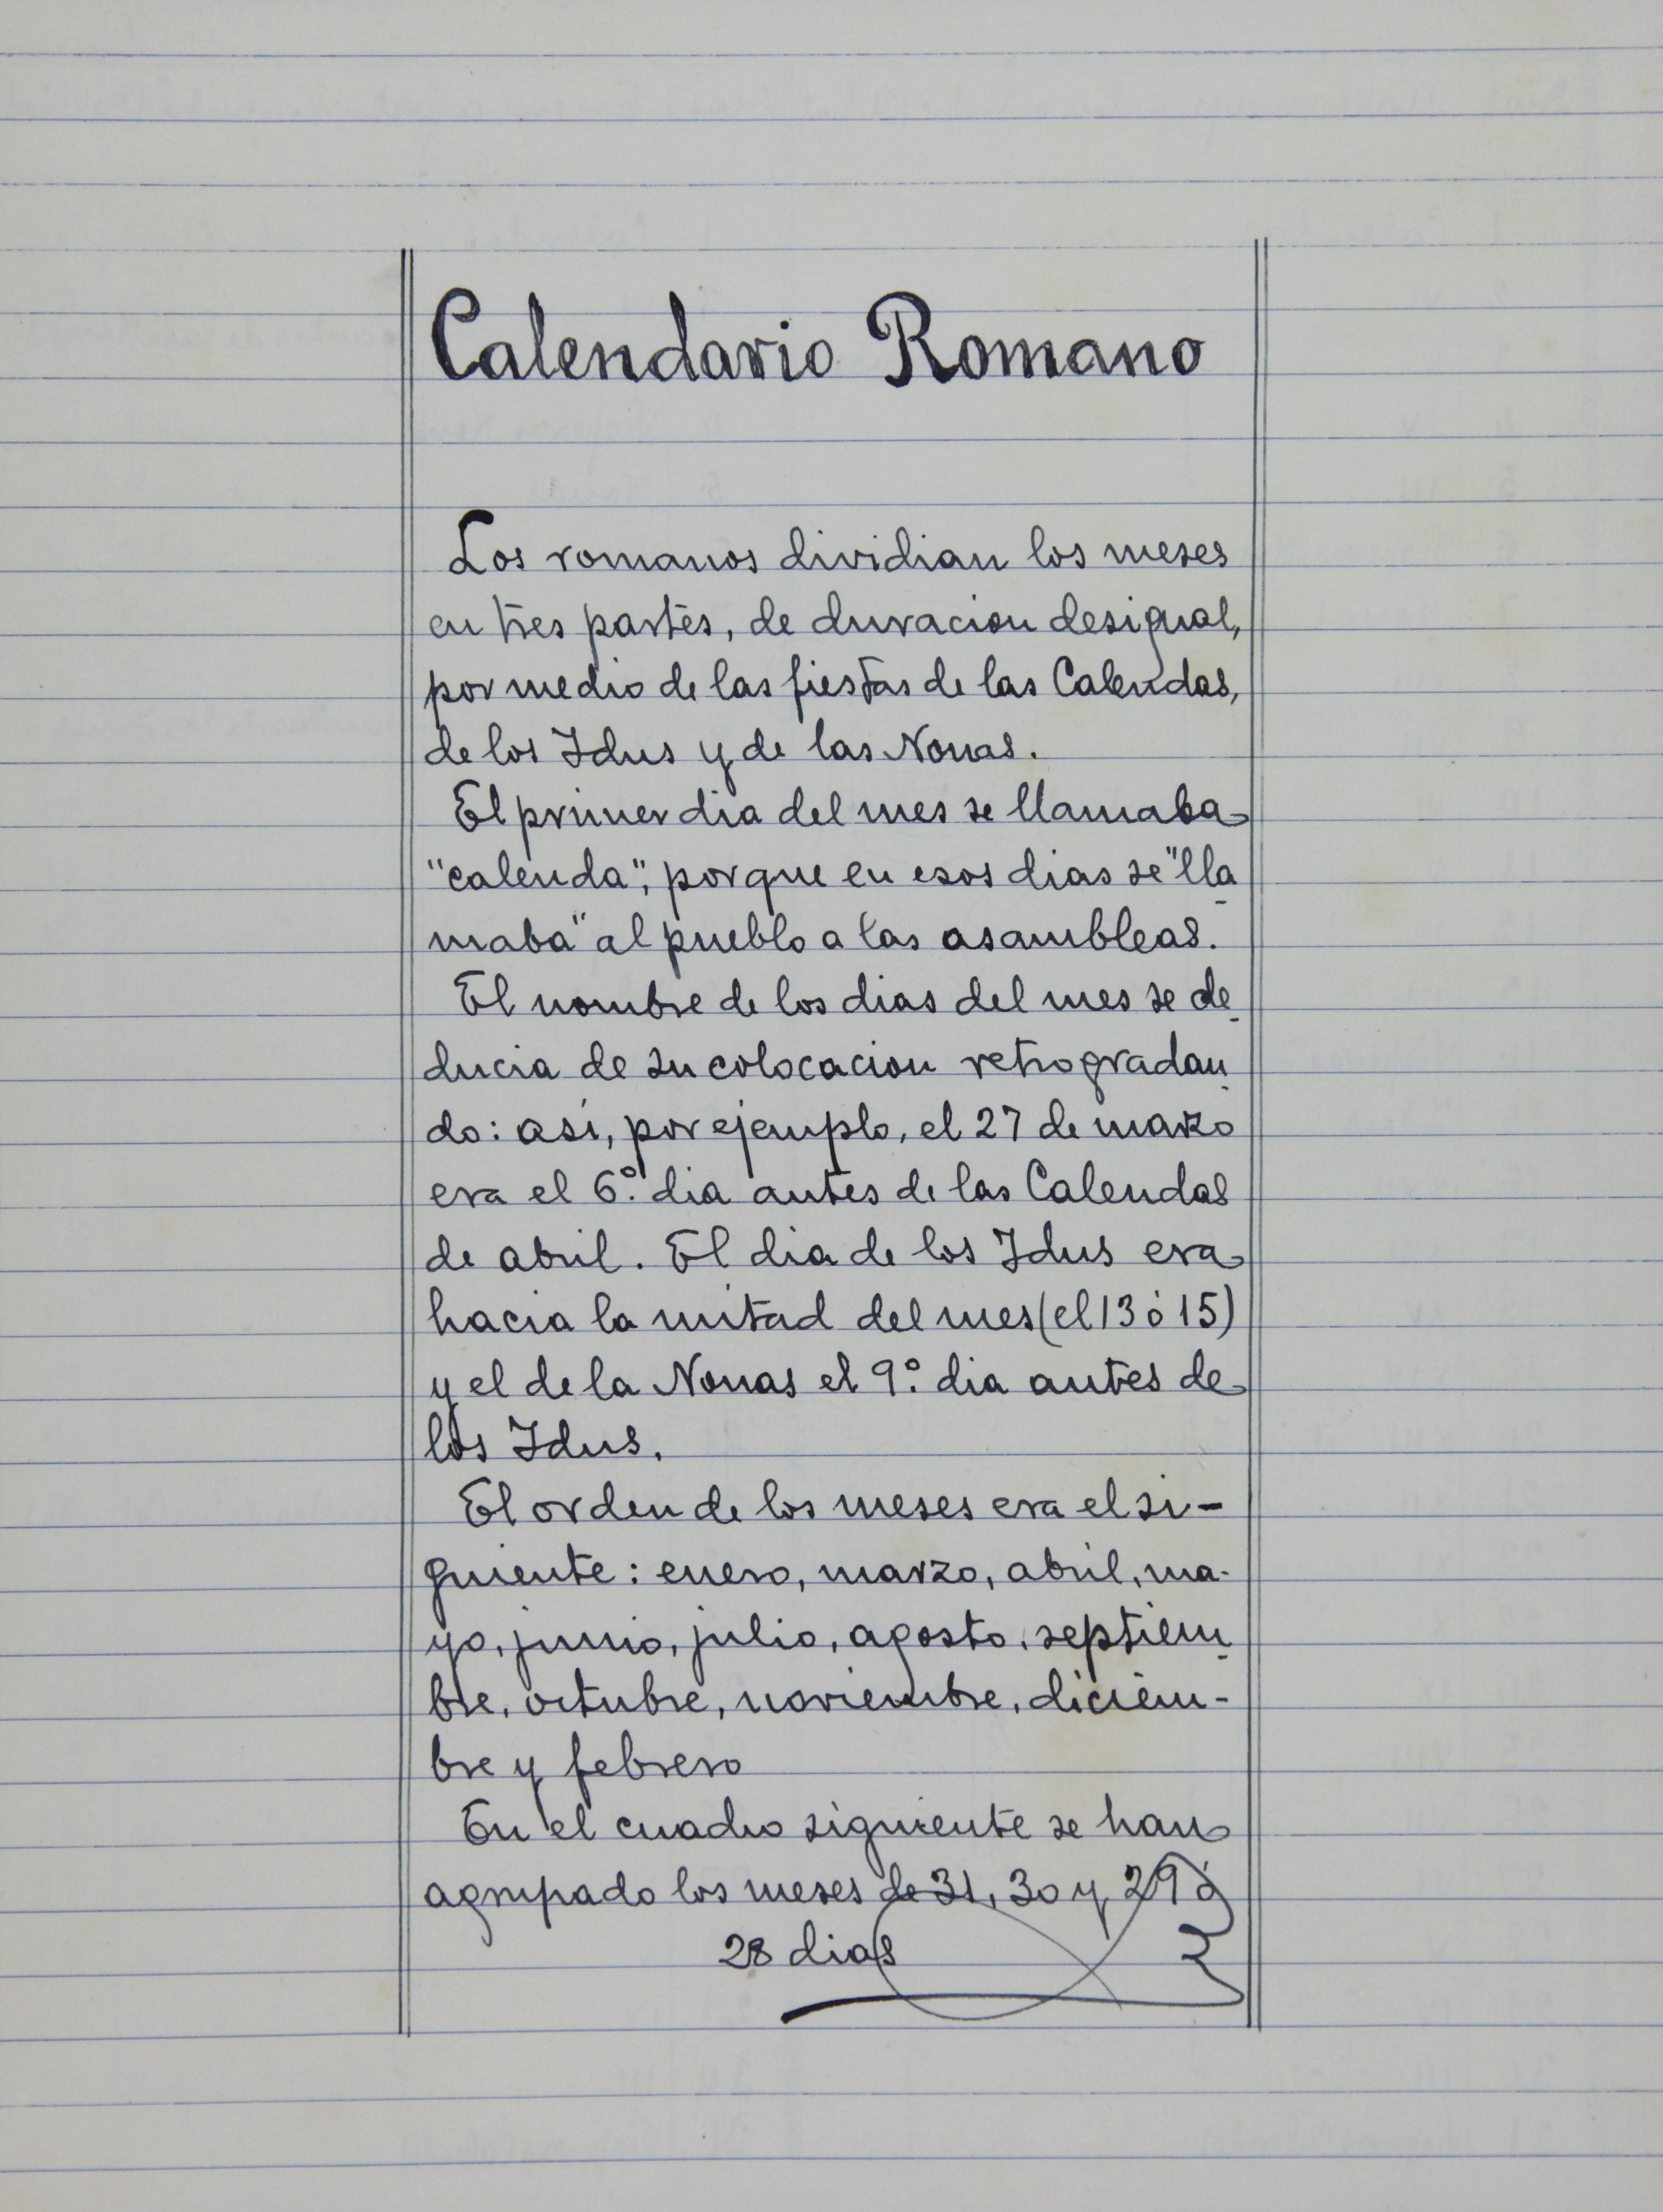 Calendario Romano
Los romanos dividian los meses
en tres partes, de duracion desigual,
por medio de las fiestas de las Calendas,
de los Idus y de las Nonas.
El primer dia del mes se llamaba
"calenda", porque en esos dias se "lla
maba" al pueblo a las asambleas.
El nombre de los dias del mes se de
ducia de su colocacion retrogradan
do: asi, por ejemplo, el 27 de marzo
era el 6.º dia antes de las Calendas
de abril. El dia de los Idus era
hacia la mitad del mes (el 13 ó 15)
y el de la Nonas el 9.º dia antes de
los Idus.
El orden de los meses era el si-
guiente: enero, marzo, abril, ma-
yo, junio, julio, agosto, septiem
bre, octubre, noviembre, diciem-
bre y febrero
En el cuadro siguiente se han
agrupado los meses de 31, 30 y 29 ó
28 dias